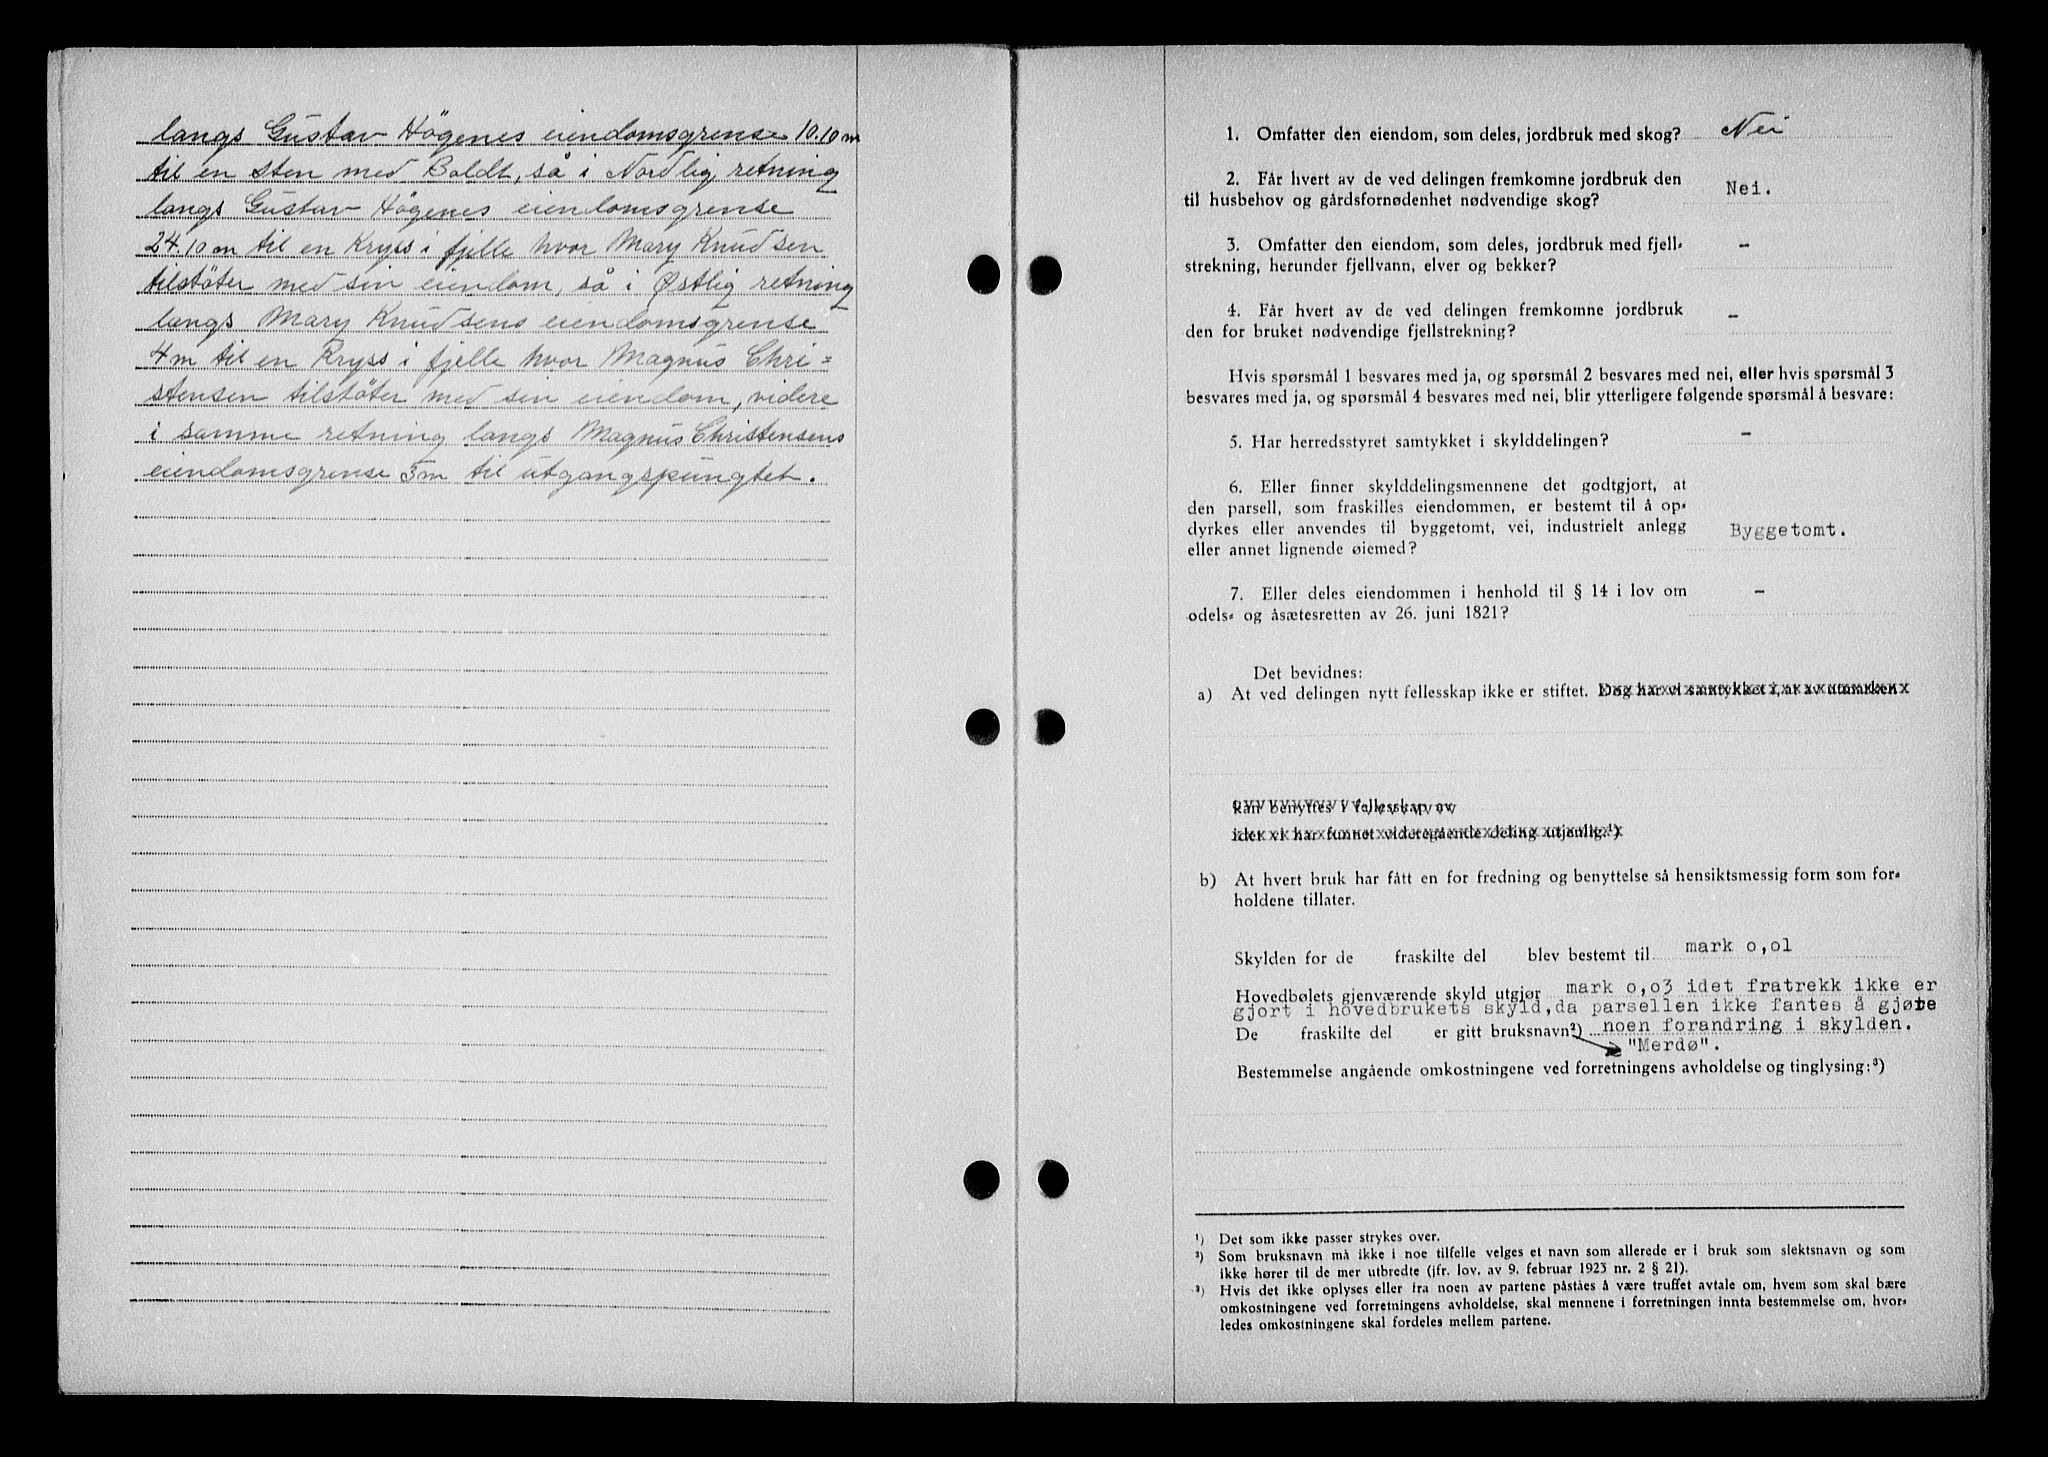 langs Gustav Högenes eiendomsgrense 10.10 m
til en sten med Boldt, så i Nordlig retning
langs Gustav Högenes eiendomsgrense
24.10 m til en Kryss i fjelle hvor Mary Knudsen
tilstöter med sin eiendom, så i Østlig retning
langs Mary Knudsens eiendomsgrense
4 m til en Kryss i fjelle hvor Magnus Chri=
stensen tilstöter med sin eiendom, videre
i samme retning langs Magnus Christensens
eiendomsgrense 5 m til utgangspungtet.
1. Omfatter den eiendom, som deles, jordbruk med skog? Nei
2. Får hvert av de ved delingen fremkomne jordbruk den
til husbehov og gårdsfornødenhet nødvendige skog? Nei.
3. Omfatter den eiendom, som deles, jordbruk med fjell-
strekning, herunder fjellvann, elver og bekker? -
4. Får hvert av de ved delingen fremkomne jordbruk
den for bruket nødvendige fjellstrekning? -
Hvis spørsmål 1 besvares med ja, og spørsmål 2 besvares med nei, eller hvis spørsmål 3
besvares med ja, og spørsmål 4 besvares med nei, blir ytterligere følgende spørsmål å besvare:
5. Har herredsstyret samtykket i skylddelingen? -
6. Eller finner skylddelingsmennene det godtgjort, at
den parsell, som fraskilles eiendommen, er bestemt til å op-
dyrkes eller anvendes til byggetomt, vei, industrielt anlegg
eller annet lignende øiemed? Byggetomt.
7. Eller deles eiendommen i henhold til § 14 i lov om
odels- og åsætesretten av 26. juni 1821? -
Det bevidnes:
a) At ved delingen nytt fellesskap ikke er stiftet. Dog har vi samtykket i, at av utmarken
kan benyttes i fellesskap av
idet vi har funnet videregående deling utjenlig.¹)
b) At hvert bruk har fått en for fredning og benyttelse så hensiktsmessig form som for-
holdene tillater.
Skylden for de fraskilte del blev bestemt til mark o,o1
Hovedbølets gjenværende skyld utgjør mark o,o3 idet fratrekk ikke er
gjort i hovedbrukets skyld,da parsellen ikke fantes å gjøre
De fraskilte del er gitt bruksnavn²) noen forandring i skylden.
"Merdø".
Bestemmelse angående omkostningene ved forretningens avholdelse og tinglysing:³)
¹) Det som ikke passer strykes over.
²) Som bruksnavn må ikke i noe tilfelle velges et navn som allerede er i bruk som slektsnavn og som
ikke hører til de mer utbredte (jfr. lov. av 9. februar 1923 nr. 2 § 21).
³) Hvis det ikke oplyses eller fra noen av partene påståes å være truffet avtale om, hvem som skal bære
omkostningene ved forretningens avholdelse, skal mennene i forretningen innta bestemmelse om, hvor-
ledes omkostningene skal fordeles mellem partene.